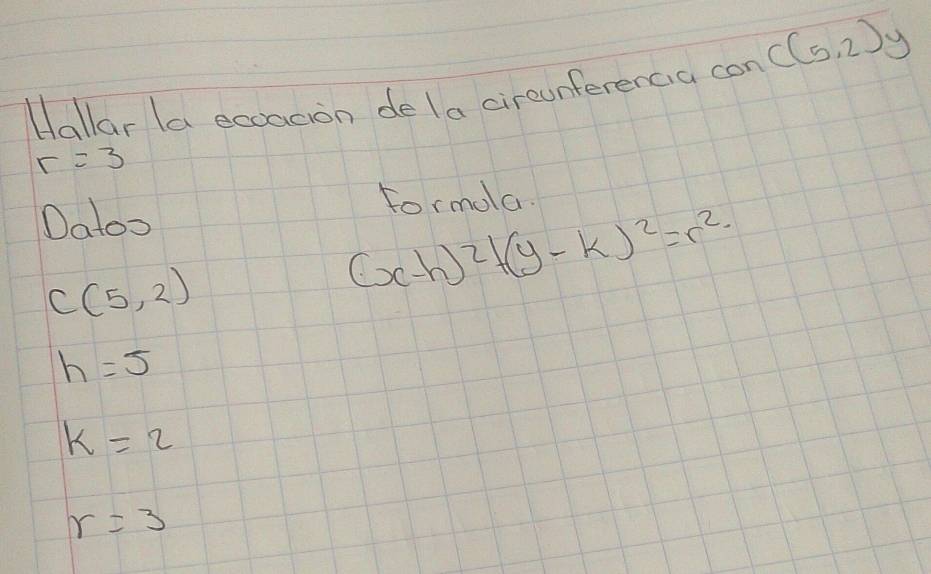 Hallar la ecuación de la circunferencia con C(5,2) y
r=3
Datos
Formula.
C(5,2)
(x-h)²+(y-k)²=r².
h=5
k=2
r=3